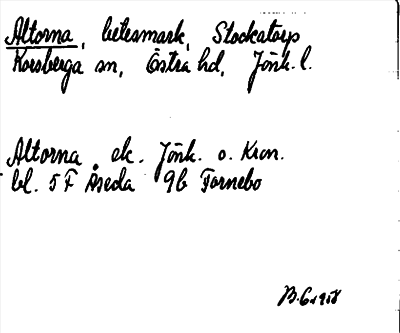 Altorna, betesmark, Stockatorp
Korsberga sn, Östra hd, Jönk. l.
Altorna, ek. Jönk. o. Kron.
bl. 5F Åseda 9b Fornebo
1958